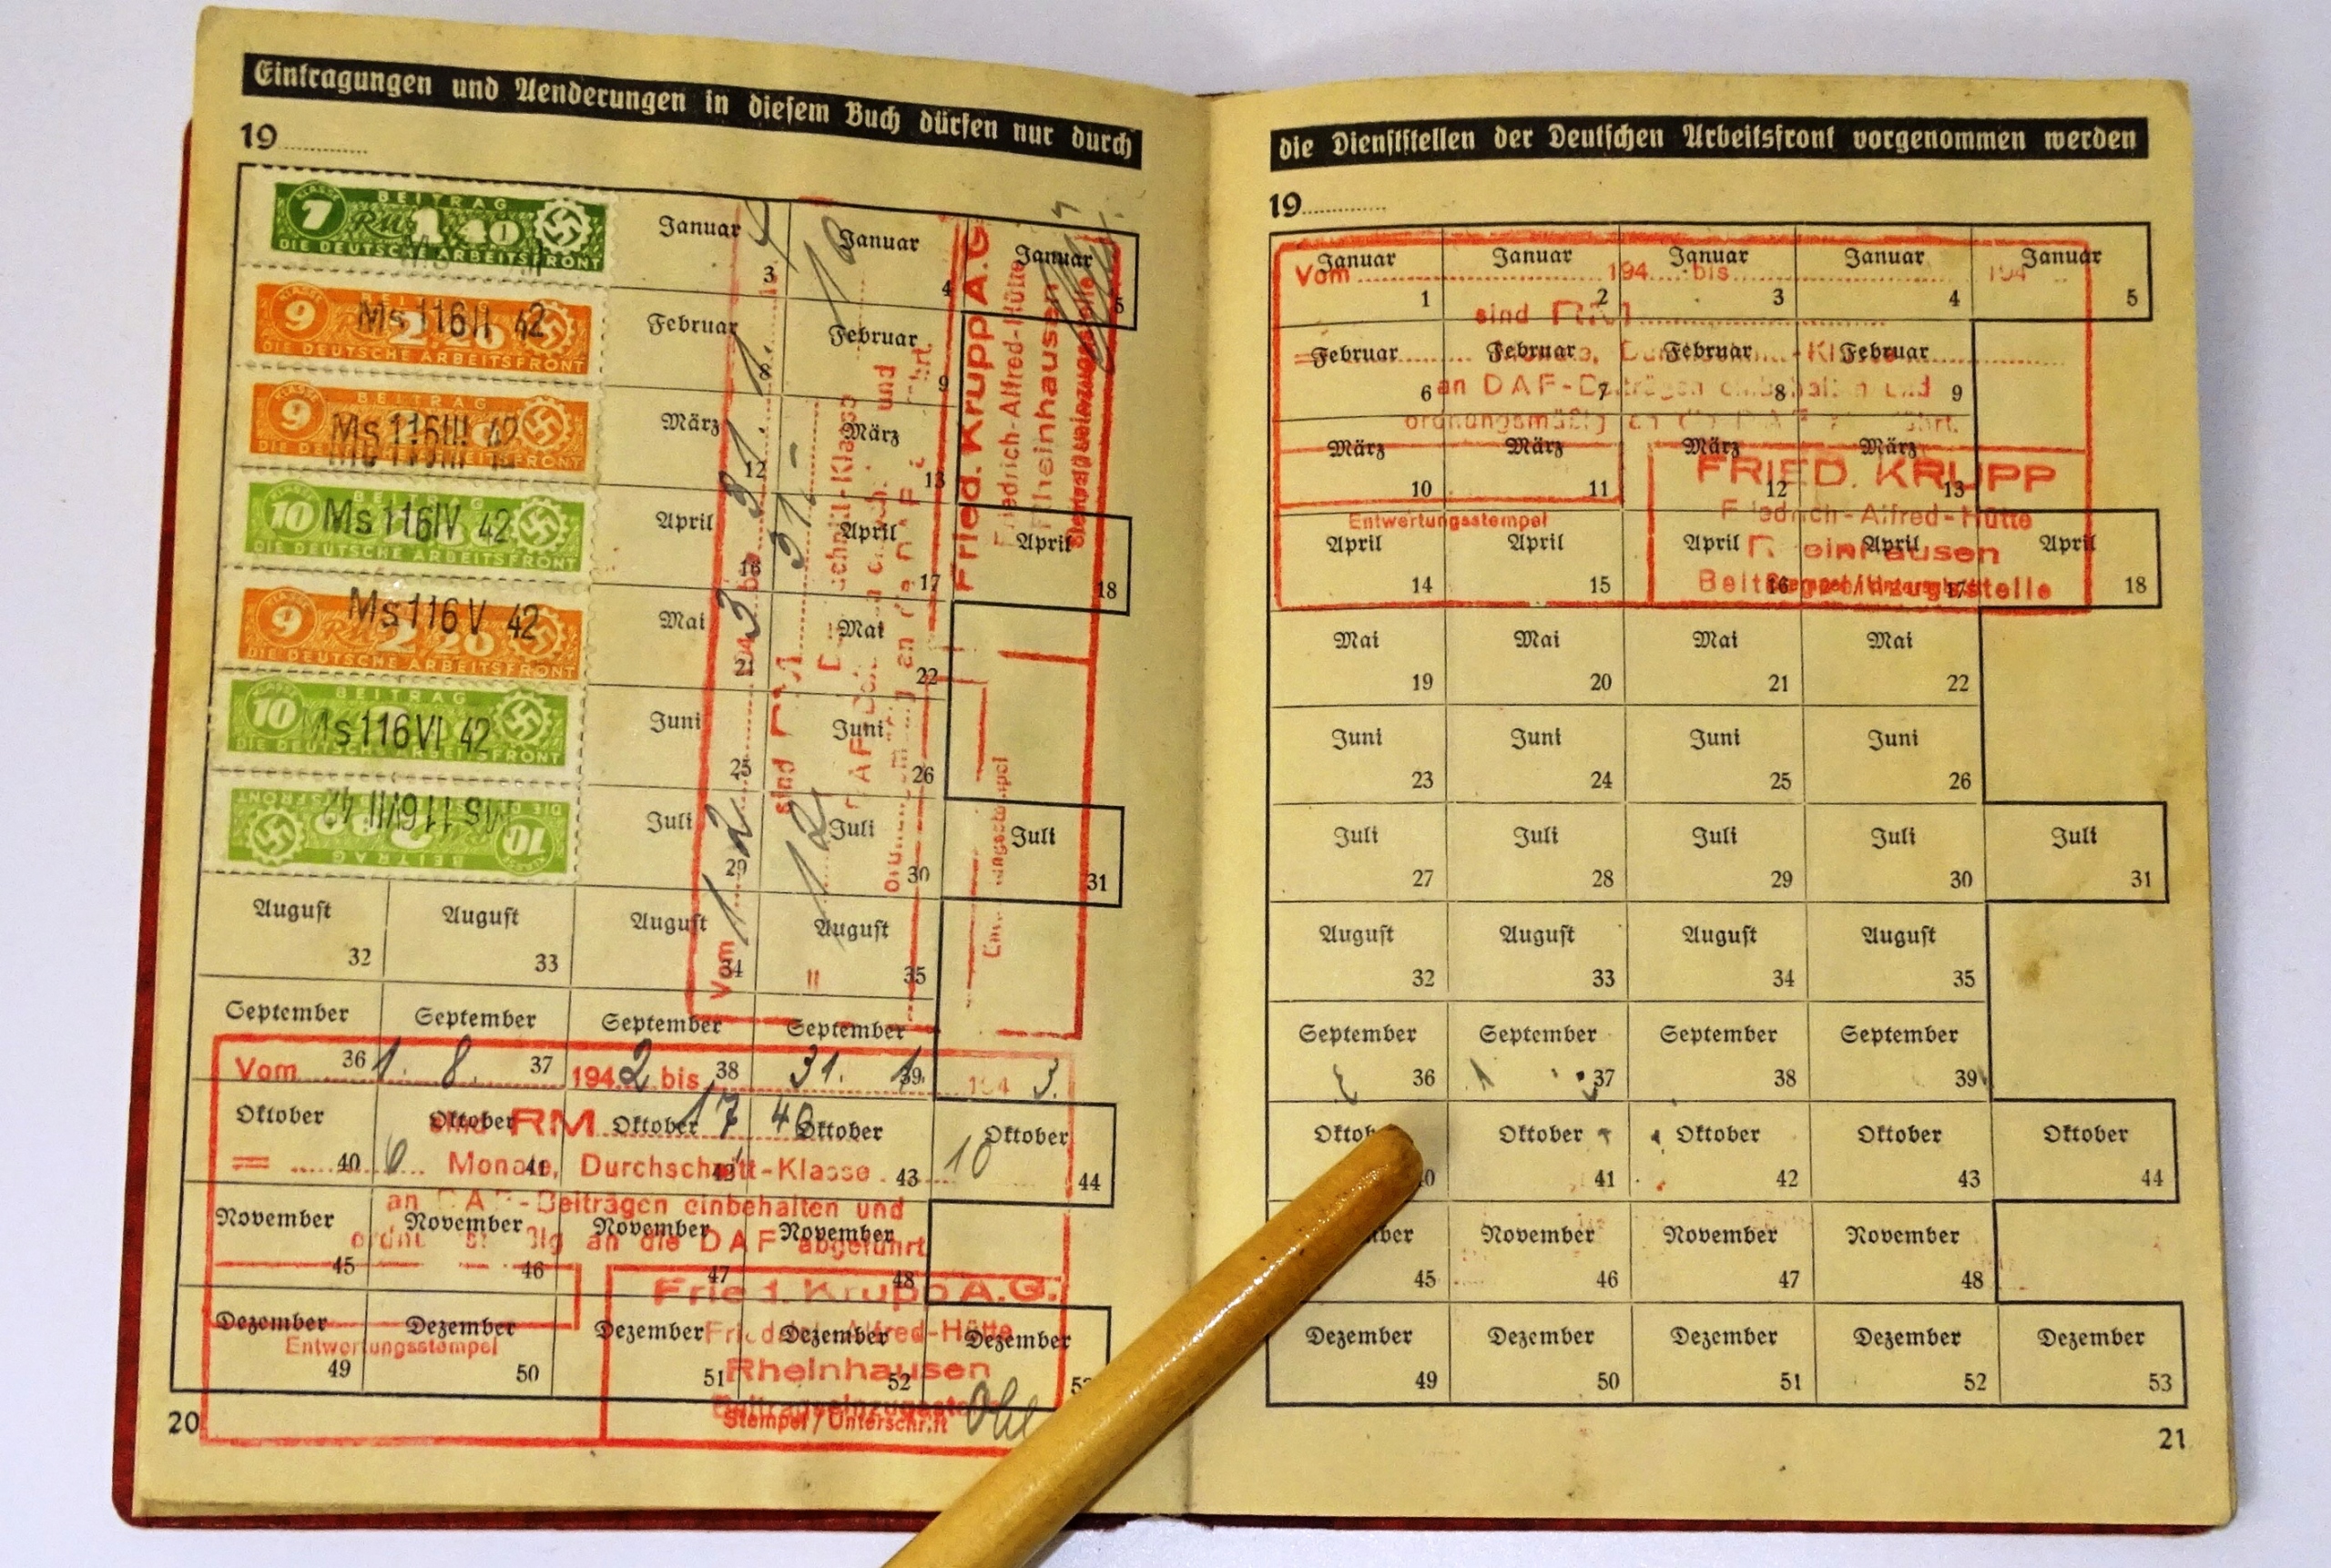 Eintragungen und Aenderungen in diesem Buch dürfen nur durch
19
KLASSE 7 BEITRAG
RM 1 40
DIE DEUTSCHE ARBEITSFRONT
9 Ms 116 II 42
2 20
DIE DEUTSCHE ARBEITSFRONT
KLASSE 9 BEITRAG
Ms 116 III 42
DIE DEUTSCHE ARBEITSFRONT
10 BEITRAG
Ms 116 IV 42
DIE DEUTSCHE ARBEITSFRONT
9 Ms 116 V 42
RM 2 20
DIE DEUTSCHE ARBEITSFRONT
KLASSE 10 BEITRAG
Ms 116 VI 42
DIE DEUTSCHE ARBEITSFRONT
10 BEITRAG
Ms 116 VII 42
Januar 3 Januar 4 Januar 5
Februar 8 Februar 9
März 12 März 13
April 16 April 17 April 18
Mai 21 Mai 22
Juni 25 Juni 26
Juli 29 Juli 30 Juli 31
August 32 August 33 August 34 August 35
September 36 September 37 September 38 September 39
Oktober 40 Oktober 41 Oktober Oktober 43 Oktober 44
November 45 November 46 November 47 November 48
Dezember 49 Dezember 50 Dezember 51 Dezember 52 Dezember
Vom
sind RM
Fried. Krupp A.G.
Friedrich-Alfred-Hütte
Rheinhausen
Vom 1. 8. 1942 bis 31. 1. 1943.
sind RM 17 40
= 6 Monate, Durchschnitt-Klasse 10
an DAF-Beiträgen einbehalten und
ordnungsmäßig an die DAF abgeführt
Fried. Krupp A.G.
Friedrich-Alfred-Hütte
Entwertungsstempel
Rheinhausen
Beitragseinzugsstelle
Stempel/Unterschrift
20
die Dienststellen der Deutschen Arbeitsfront vorgenommen werden
19
Januar 1 Januar 2 Januar 3 Januar 4 Januar 5
Februar 6 Februar 7 Februar 8 Februar 9
März 10 März 11 März 12 März 13
April 14 April 15 April 16 April 17 April 18
Mai 19 Mai 20 Mai 21 Mai 22
Juni 23 Juni 24 Juni 25 Juni 26
Juli 27 Juli 28 Juli 29 Juli 30 Juli 31
August 32 August 33 August 34 August 35
September 36 September 37 September 38 September 39
Oktober 40 Oktober 41 Oktober 42 Oktober 43 Oktober 44
November 45 November 46 November 47 November 48
Dezember 49 Dezember 50 Dezember 51 Dezember 52 Dezember 53
Vom 194 bis 194
sind RM
an DAF-Beiträgen einbehalten und
ordnungsmäßig an die DAF abgeführt.
FRIED. KRUPP
Friedrich-Alfred-Hütte
Entwertungsstempel
Rheinhausen
Beitragseinzugsstelle
21